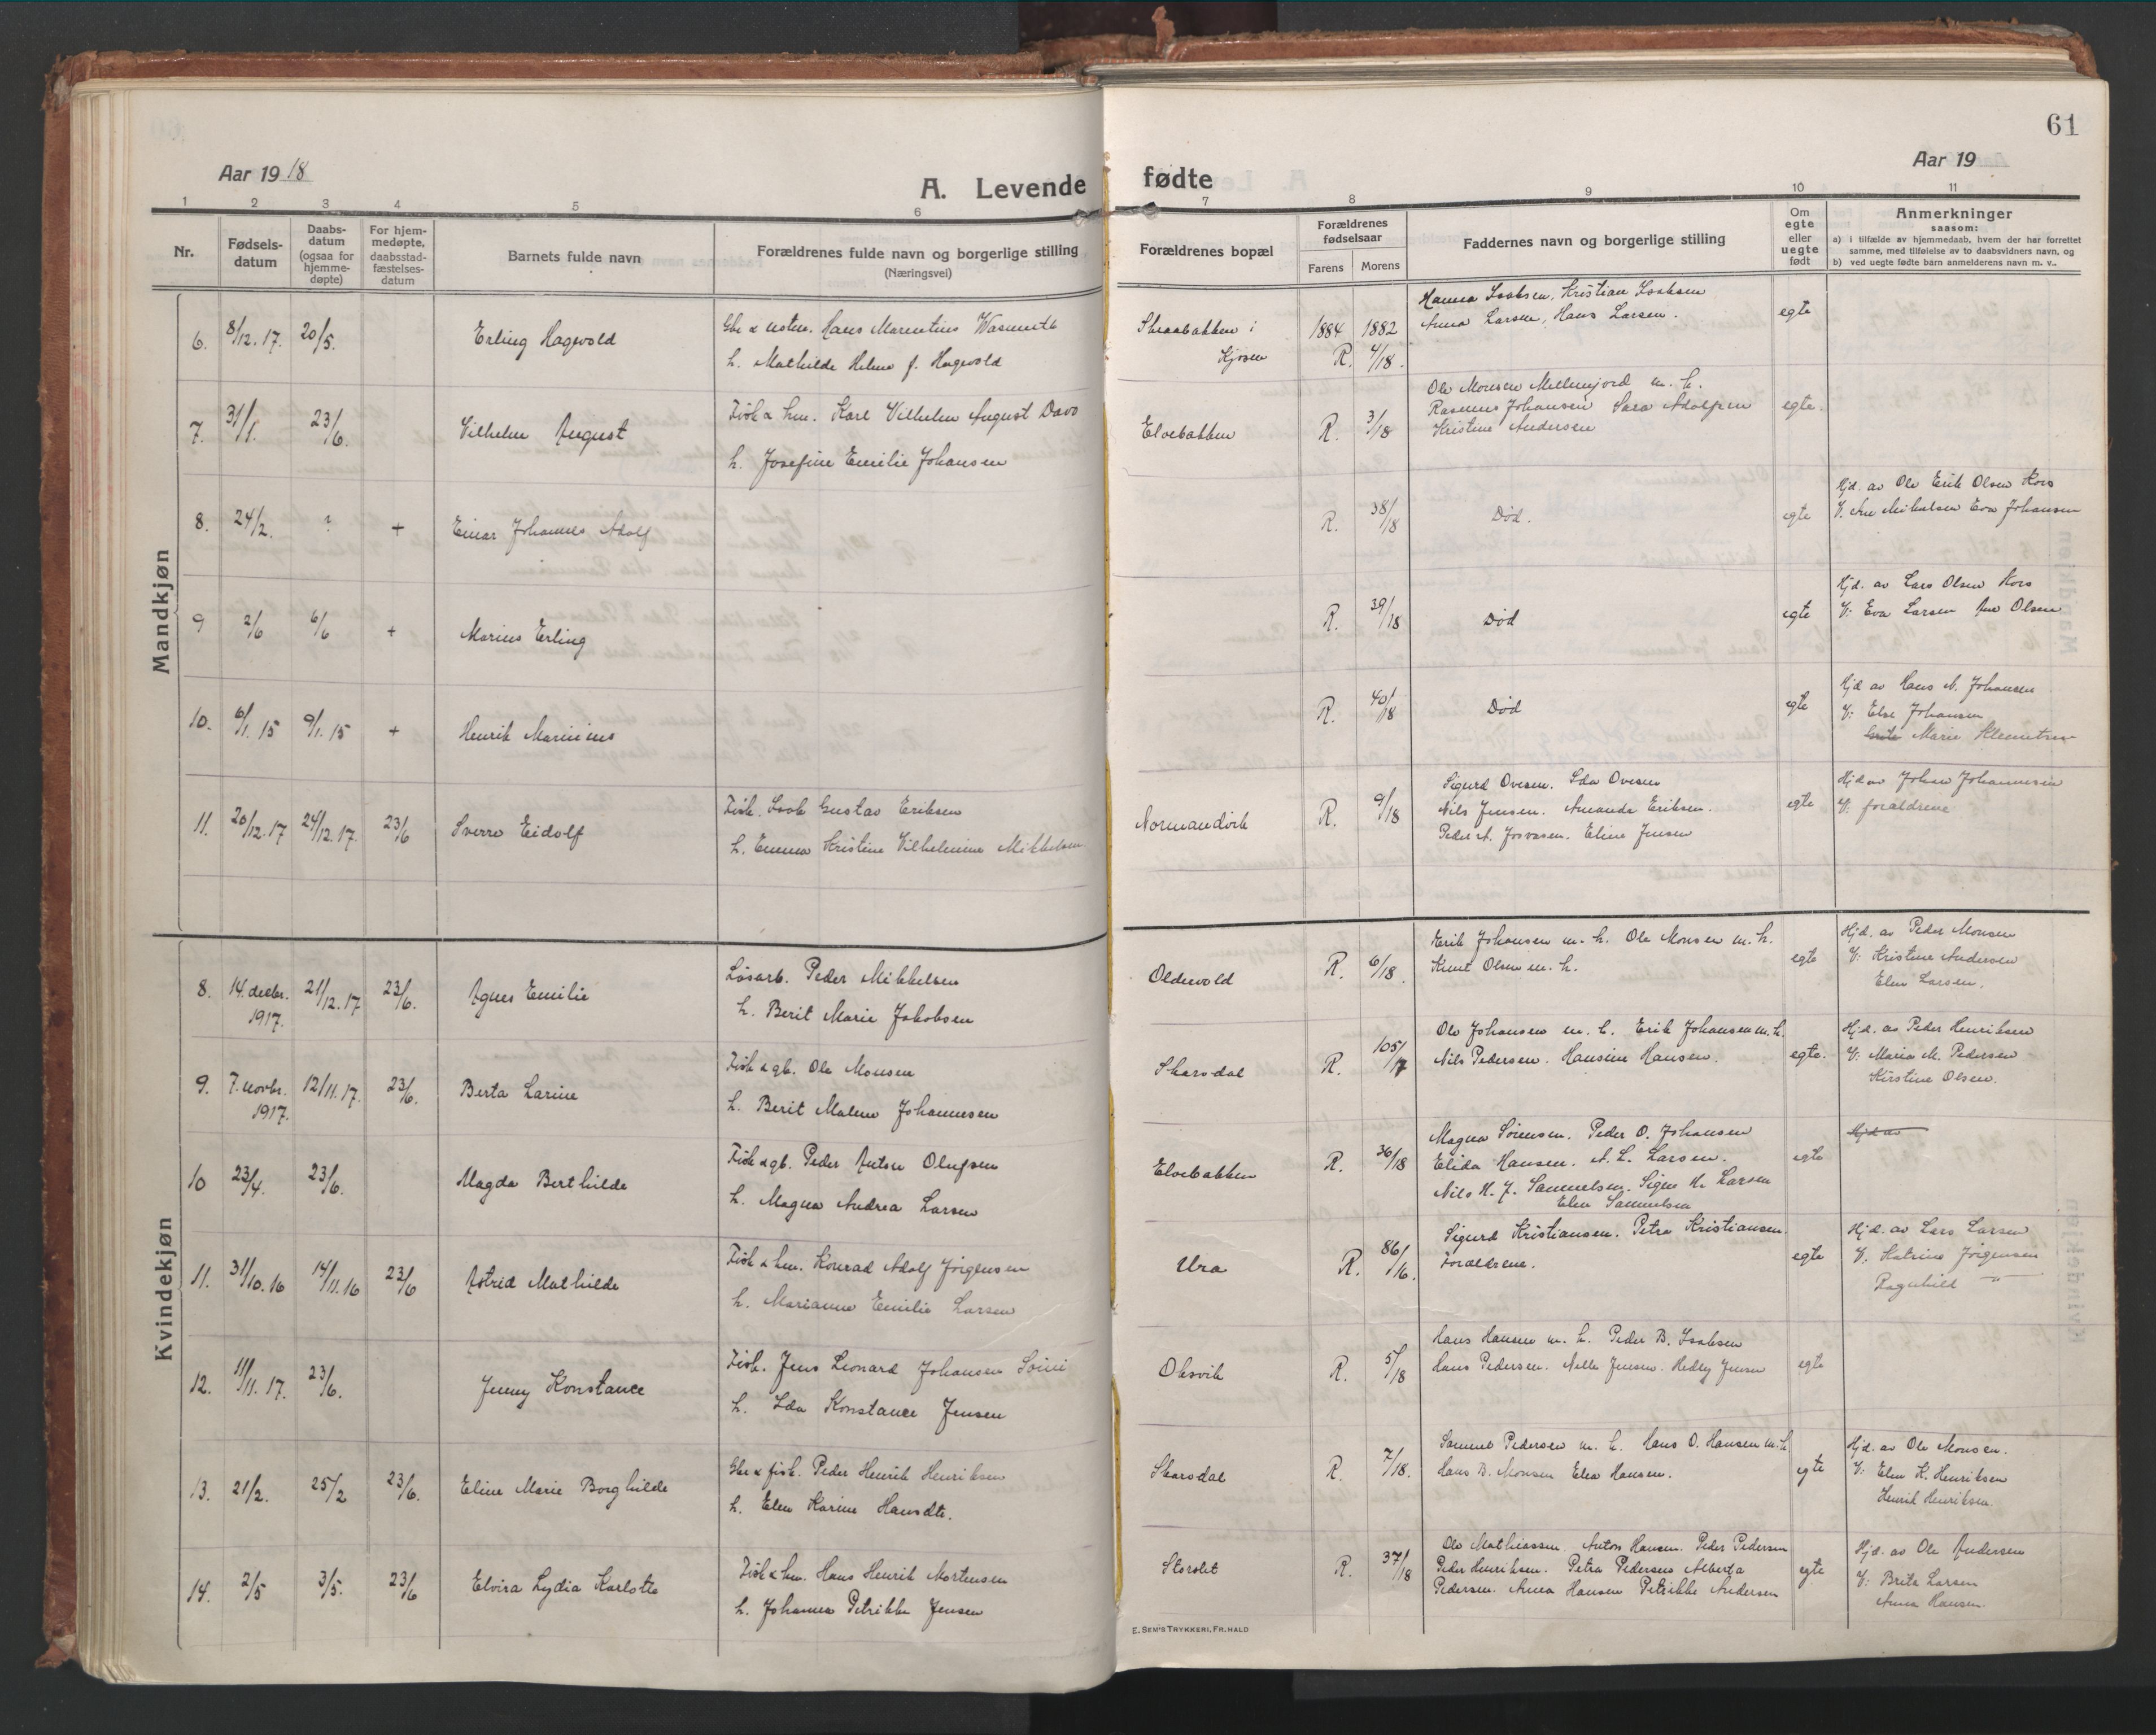 61
Aar 1918
Aar 19
A. Levende fødte
1 2 3 4 5 6 7 8 9 10 11
Nr.
Fødsels-
datum
Daabs-
datum
(ogsaa for
hjemme-
døpte)
For hjem-
medøpte,
daabsstad-
fæstelses-
datum
Barnets fulde navn
Forældrenes fulde navn og borgerlige stilling
(Næringsvei)
Forældrenes bopæl
Forældrenes
fødselsaar
Farens Morens
Faddernes navn og borgerlige stilling
Om
egte
eller
uegte
født
Anmerkninger
saasom:
a) i tilfælde av hjemmedaab, hvem der har forrettet
samme, med tilføielse av to daabsvidners navn, og
b) ved uegte fødte barn anmelderens navn m. v..
Mandkjøn
6. 8/12. 17. 20/5. Erling Hagevold
Hans Marentius Wasmuth
h. Mathilde Helene f. Hagevold
Kjosen
1884 1882
R. 4/18.
Hanna Isaksen, Kristian Isaksen
Anna Larsen, Hans Larsen.
egte
7. 31/1. 23/6. Vilhelm August
Fisk & hm. Karl Vilhelm August Davo
h. Josefine Emilie Johansen
Elvebakken
R. 3/18
Ole Monsen Mellemjord m. h.
Rasmus Johansen Sara Adolfsen
Kristine Andersen
egte.
8. 24/2. ? + Einar Johannes Adolf
R. 38/18
Død.
egte
Hjd. av Ole Erik Olsen Kors
V. Ane Mikalsen Eva Johansen
9 2/6 6/6 + Marius Erling
R. 39/18
Død
egte
Hjd. av Lars Olsen Kors
V: Eva Larsen Ane Olsen
10. 6/1. 15 9/1. 15 + Henrik Marinius
R. 40/18
Død
egte
Hjd av Hans N. Johansen
V: Else Johansen
Marie Klemetsen
11. 20/12. 17 24/12. 17. 23/6 Sverre Eidolf
Fisk. Isak Gustav Eriksen
h. Emma Kristine Vilhelmine Mikkelsen
Normandvik
R. 9/18
Sigurd Ovesen. Ida Ovesen
Nils Jensen. Amanda Eriksen.
Peder A. Josvasen. Eline Jensen
egte
Hjd av Johan Johannesen
V: forældrene
Kvindekjøn
8. 14. decbr. 1917. 21/12. 17 23/6. Agnes Emilie
Løsarb. Peder Mikkelsen
h. Berit Marie Jakobsen
Oldervold
R. 6/18.
Erik Johansen m. h. Ole Monsen m. h.
Knut Olsen m. h.
egte
Hjd. av Peder Monsen
V: Kristine Andersen
Elen Larsen.
9. 7. novbr. 1917. 12/11. 17. 23/6. Berta Larine
Fisk & gb. Ole Monsen
h. Berit Malene Johannesen
Skarsdal
R. 105/17
Ole Johansen m. h. Erik Johansen m. h.
Nils Pedersen. Hansine Hansen.
egte.
Hjd. av Peder Henriksen
V: Maria M. Pedersen
Kirstine Olsen.
10 23/4. 23/6. Magda Berthilde
Fisk & gb. Peder Anton Olufsen
h. Magna Andrea Larsen
Elvebakken
R. 36/18
Magna Sørensen. Peder O. Johansen
Elida Hansen. A. L. Larsen.
Nils H. J. Samuelsen. Signe H. Larsen
Elen Samuelsen
egte
Hjd av
11. 31/10. 16 14/11. 16 23/6 Astrid Mathilde
Fisk & hm. Konrad Adolf Jørgensen
h. Marianne Emilie Larsen
Ura
R. 86/16.
Sigurd Kristiansen. Petra Kristiansen.
Forældrene.
egte
Hjd. av Lars Larsen
V. Katrine Jørgensen
Ragnhild —"—
12. 11/11. 17. 23/6. Jenny Konstance
Fisk. Jens Leonard Johansen
h. Ida Konstance Jensen
Oksvik
R. 5/18
Hans Hansen m. h. Peder B. Isaksen
Hans Pedersen. Nelle Jensen. Hedley Jensen
egte
13. 21/2. 25/2 23/6. Eline Marie Borghilde
Gbr & fisk. Peder Henrik Henriksen
h. Elen Karine Hansdtr.
Skarsdal
R. 7/18.
Samuel Pedersen m. h. Hans O. Hansen m. h.
Hans B. Monsen Elea Hansen.
egte
Hjd. av Ole Monsen.
V: Elen K. Henriksen
Henrik Henriksen.
14. 2/5 3/5. 23/6 Elvira Lydia Karlotte
Fisk & hm. Hans Henrik Mortensen
h. Johanna Petrikke Jensen
Storslet
R. 37/18
Ole Mathiassen Anton Hansen. Peder Pedersen
Peder Henriksen. Petra Pedersen Alberta
Pedersen. Anna Hansen Petrikke Andersen
egte
Hjd. av Ole Andersen
V: Brita Larsen
Anna Hansen.
E. SEM'S TRYKKERI, FR.HALD